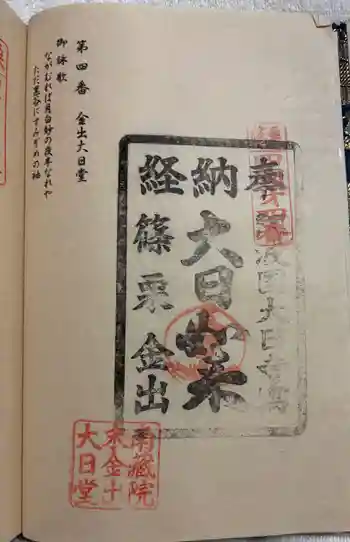 奉
国大日寺
納
大日如来
経
篠栗金出
第四番 金出大日堂
御詠歌
ながむれば月白妙の夜半なれや
ただ黒谷にすみぞめの袖
南藏院
末金出
大日堂